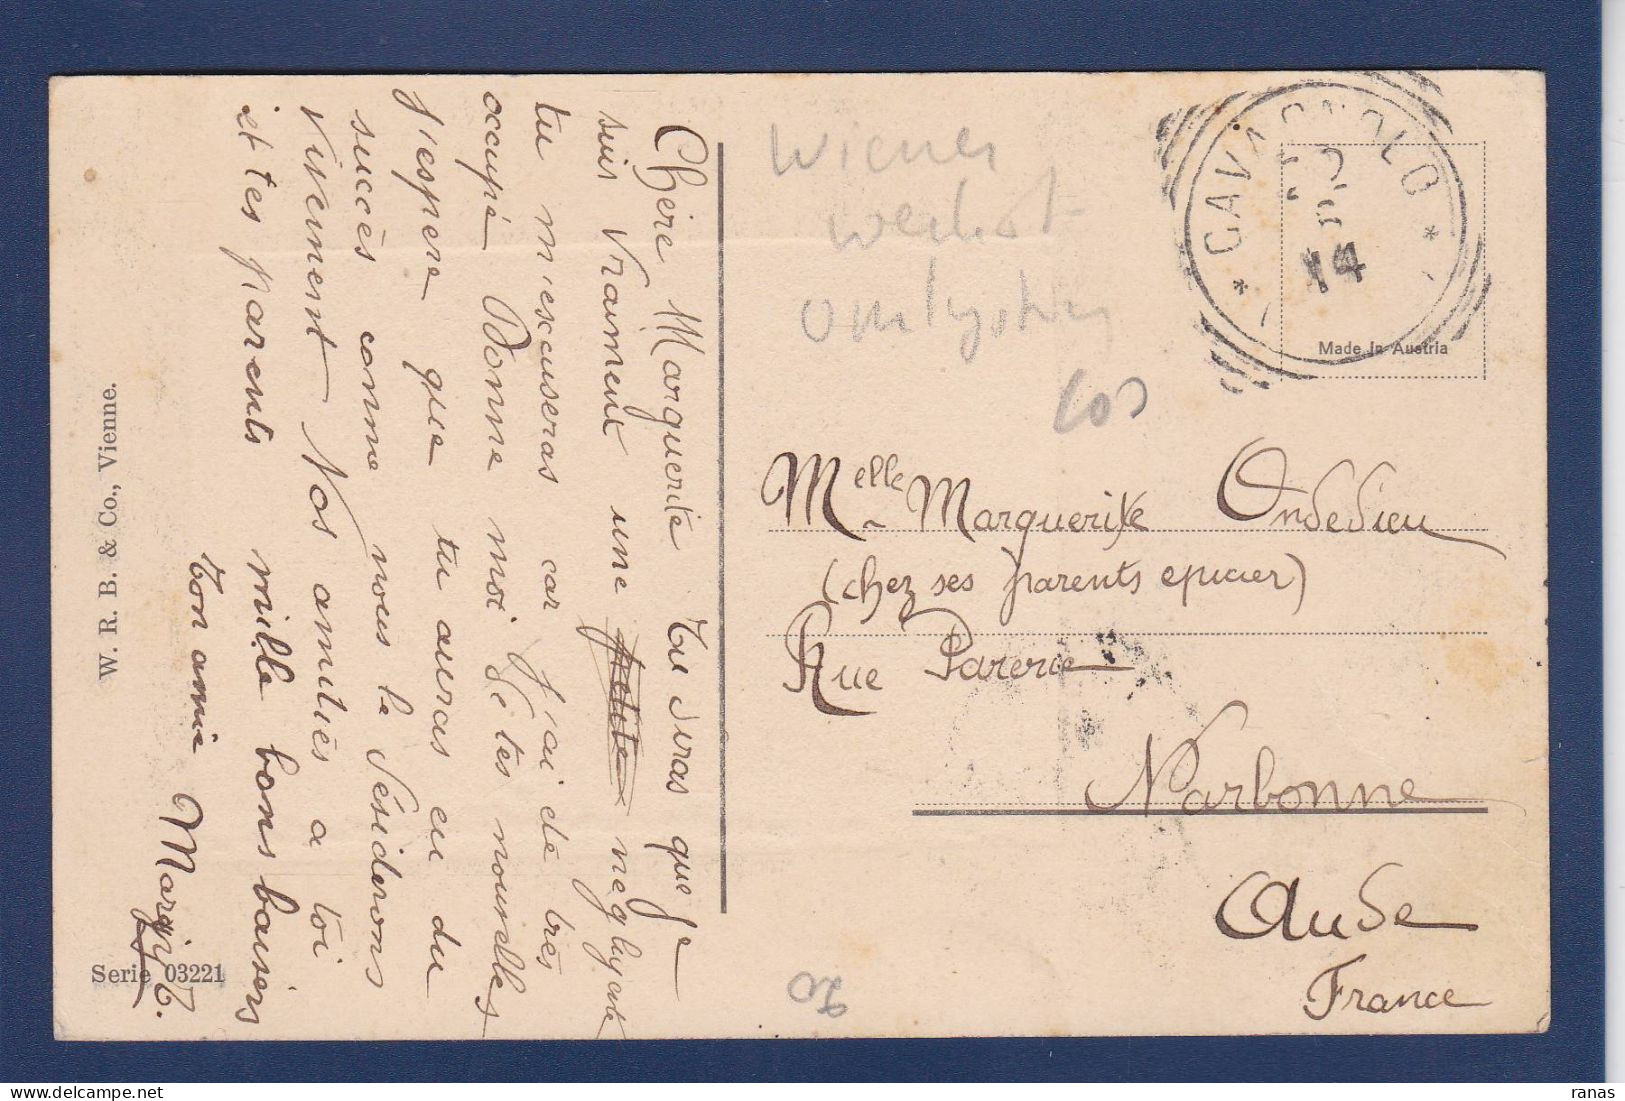 Chère Marguerite Tu diras que je
suis vraiment une petite négligente
tu m'escuseras car j'ai été très
occupé Donne moi de tes nouvelles
J'espère que tu auras eu du
succès comme nous le désiderons
vivement Nos amitiés a toi
et tes parents mille bons baisers
ton amie Margit T.
W. R. B. & Co., Vienne.
Serie 03221
Wiener
* CAVAGNOLO *
14
Made in Austria
Melle Marguerite Ondedieu
(chez ses parents epicier)
Rue Parerie
Narbonne
Aude
France
20
ranas